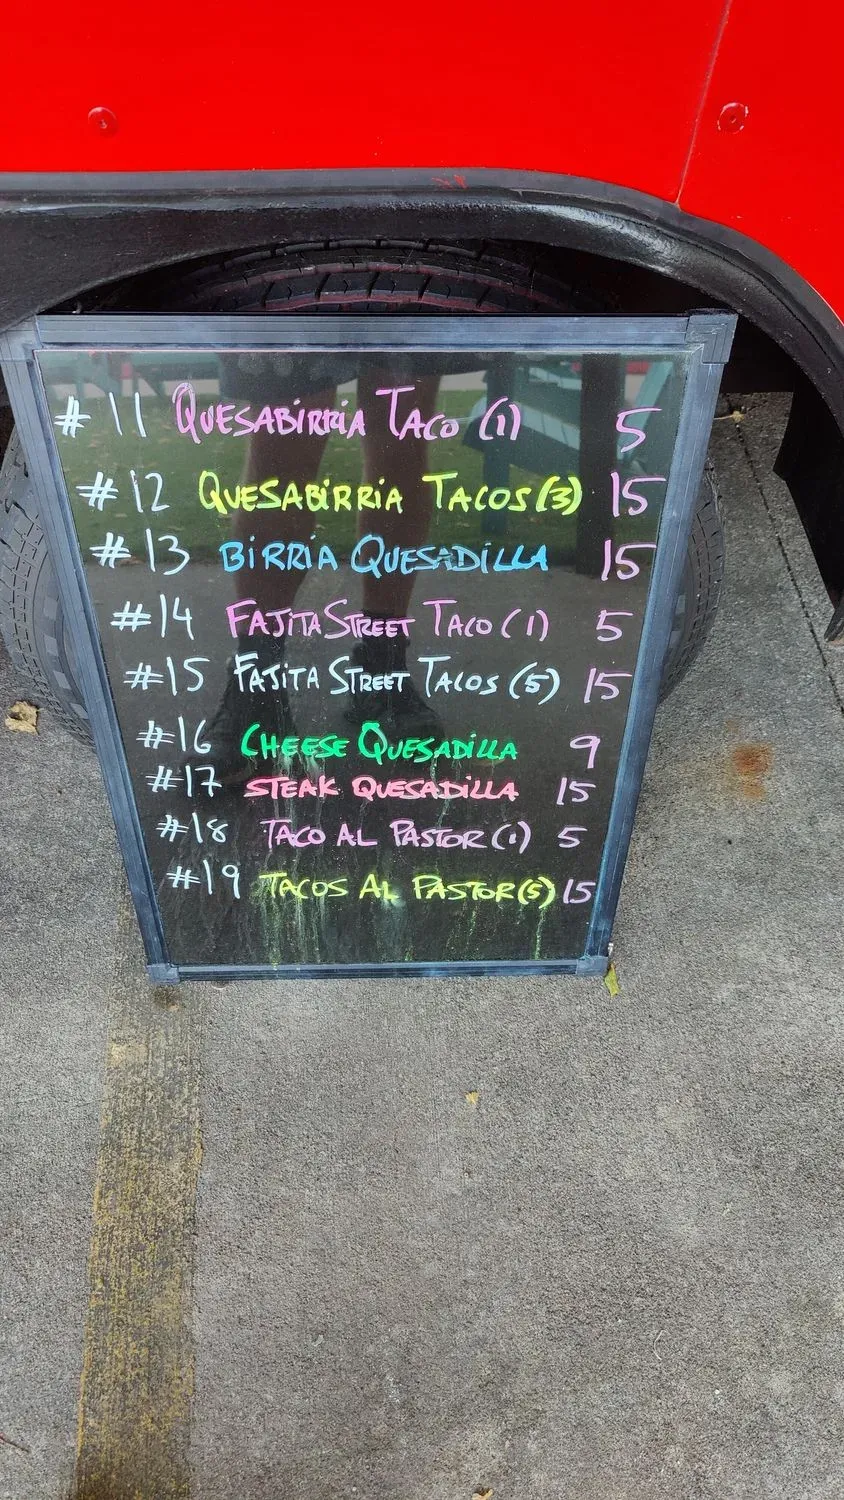 #11 QUESABIRRIA TACO (1) 5
#12 QUESABIRRIA TACOS (3) 15
#13 BIRRIA QUESADILLA 15
#14 FAJITA STREET TACO (1) 5
#15 FAJITA STREET TACOS (5) 15
#16 CHEESE QUESADILLA 9
#17 STEAK QUESADILLA 15
#18 TACO AL PASTOR (1) 5
#19 TACOS AL PASTOR (5) 15